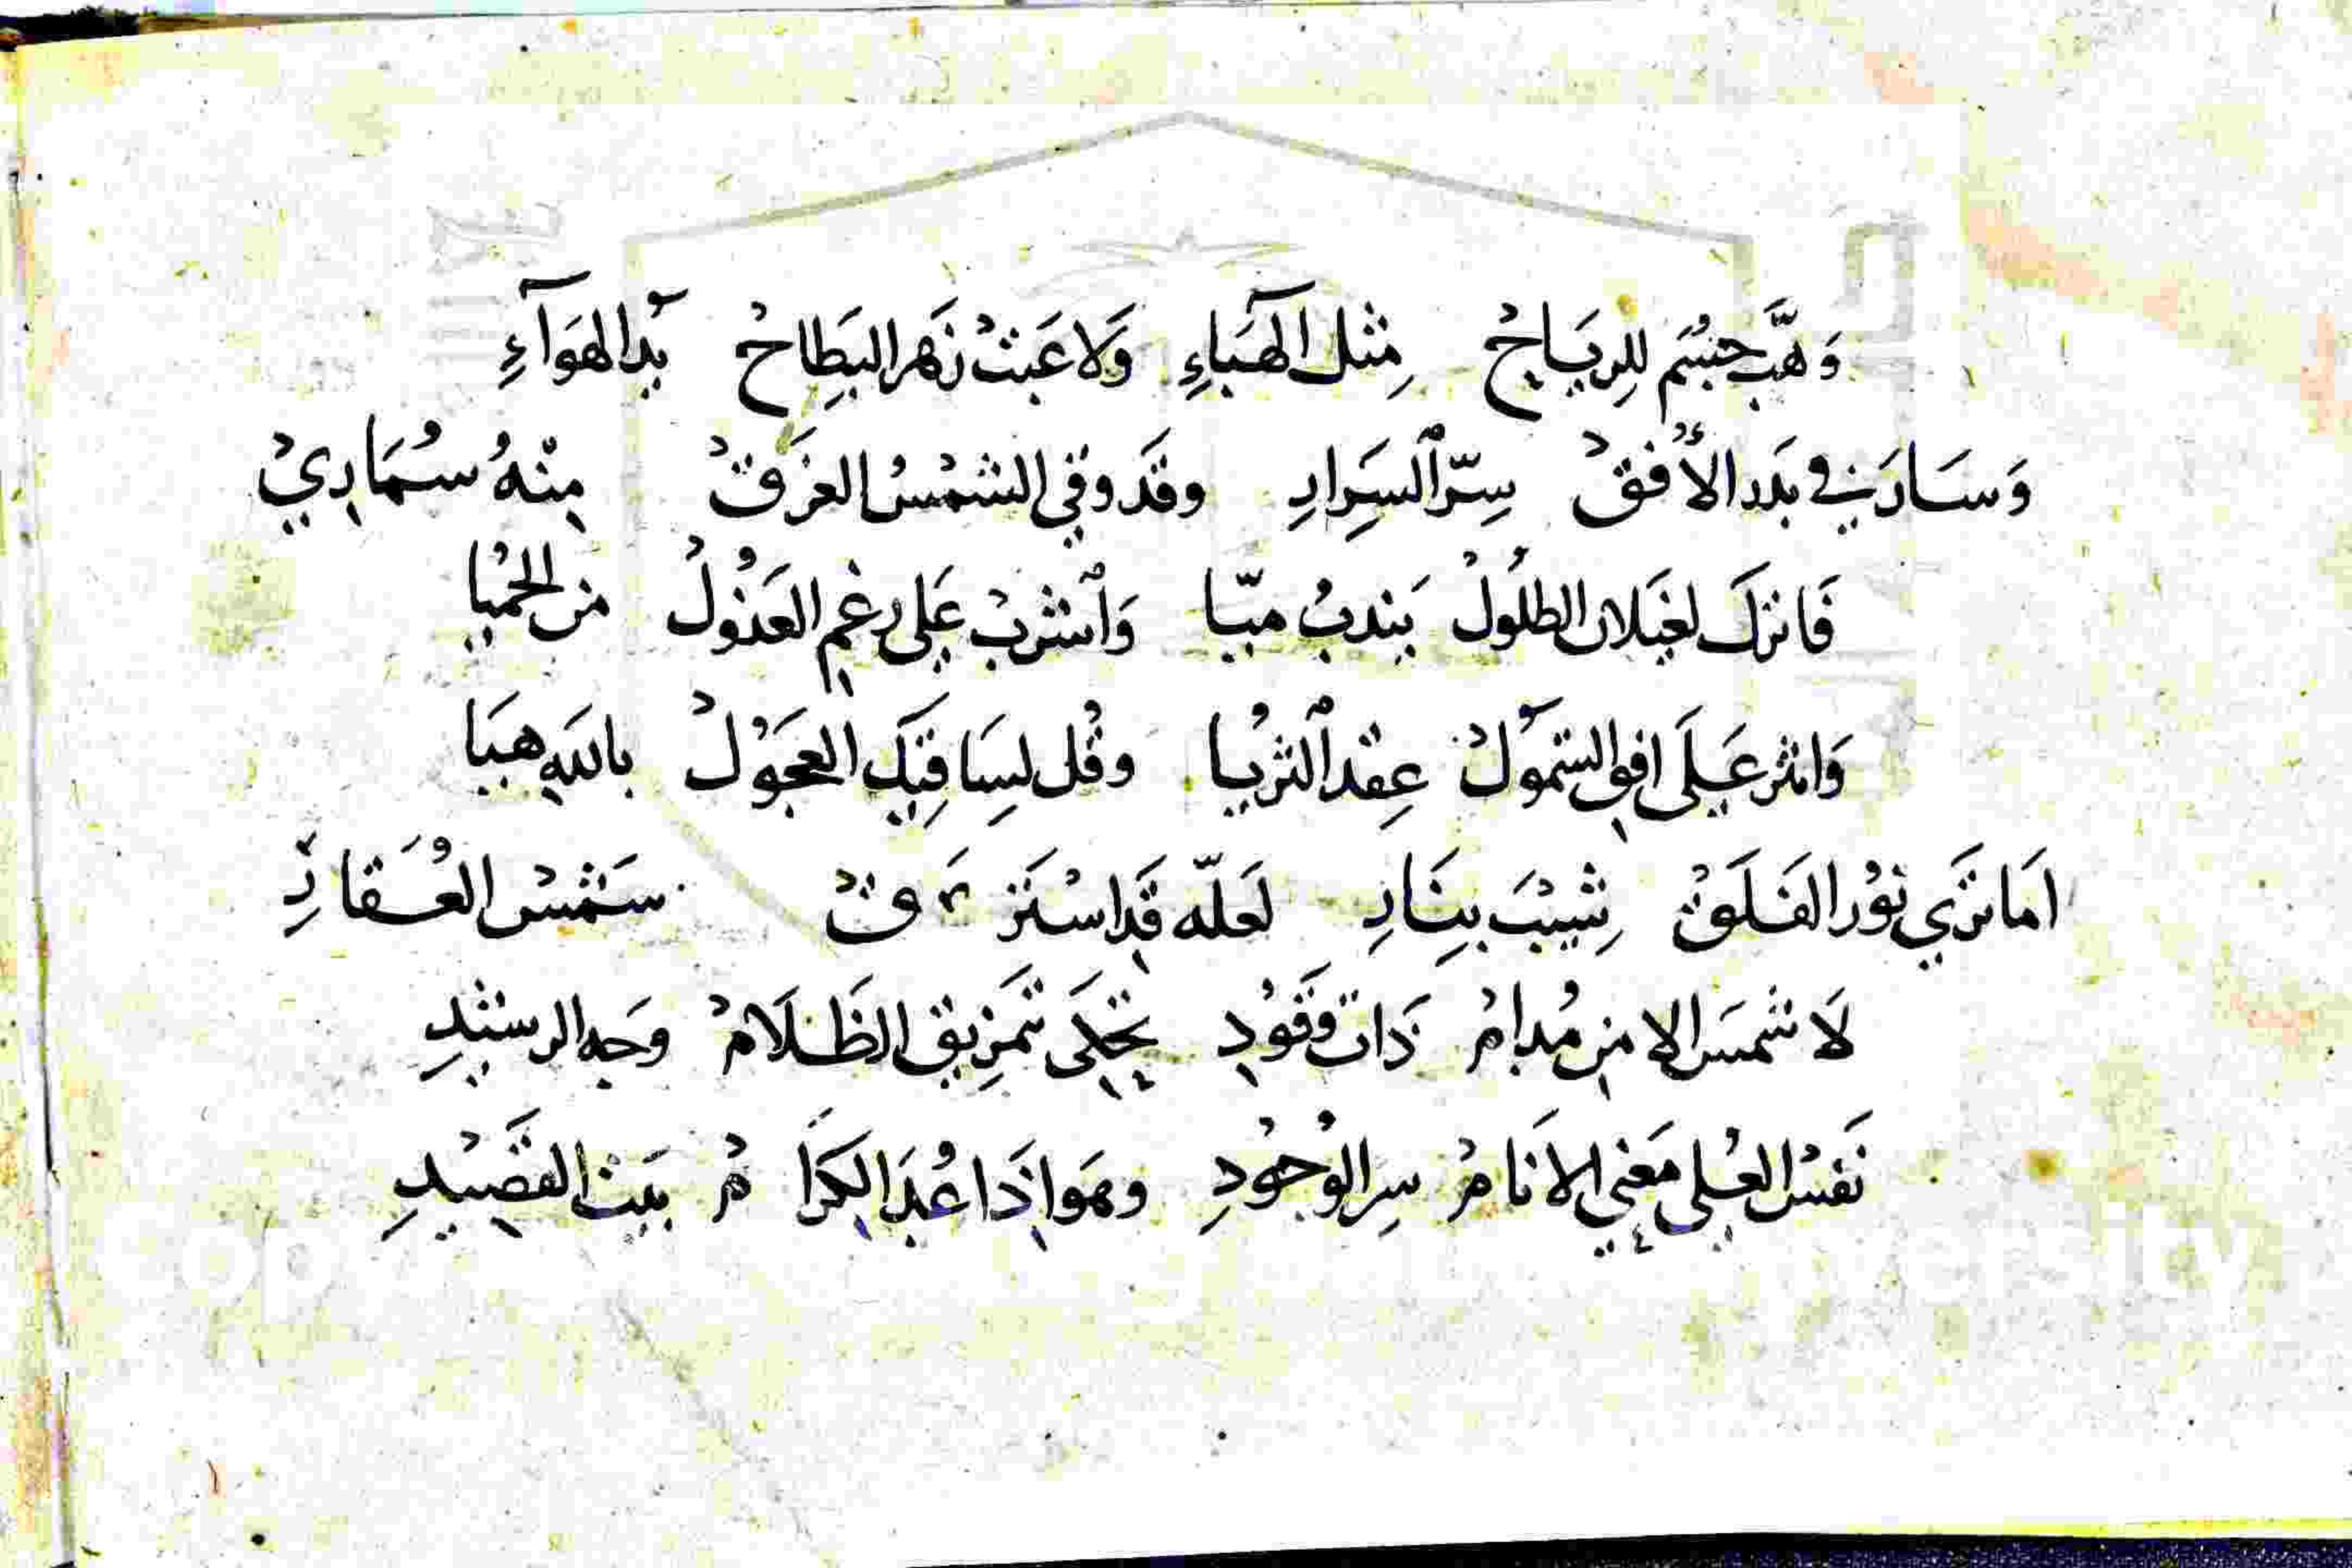 وَهَّب جِسْم للرِيَاحْ مِثل الهَبَاءِ وَلاعَبَتْ زَهر البَطِاحْ يَد الهَوَآءِ
وَسَارَ في بَلَد الأُفقْ سِرّ ٱلسَرِارِ وقَد وقي الشمْسُ الغَرَقْ مِنْهُ سُمَارِيْ
فَاترَك لغَيلان الطلُولْ يَندبْ ميّا وَٱشرِبْ عَلى رغم العَذُولْ من الحُميا
وَانثر عَلَى افق الشمَولْ عِقد ٱلثريا وقُل لسَاقِيَك العجَوُلْ بالله هيَا
امَا تَرَي نوُر الفَلَقْ شِيْبَ بِنَارِ لَعَلّه قَد اسْتَرَقْ شَمْسْ العُقَارِ
لَا شمسَ الا من مُدامْ ذَات وَقَوُدِ تجلى تَمزِيق الظَلَامْ وَجه الرشيدِ
نَفسْ العُلى مَعَني الانَامْ سِر الوُجُودِ وهَو اذَا عُدَ الكرَامْ بَيت القَصيْدِ